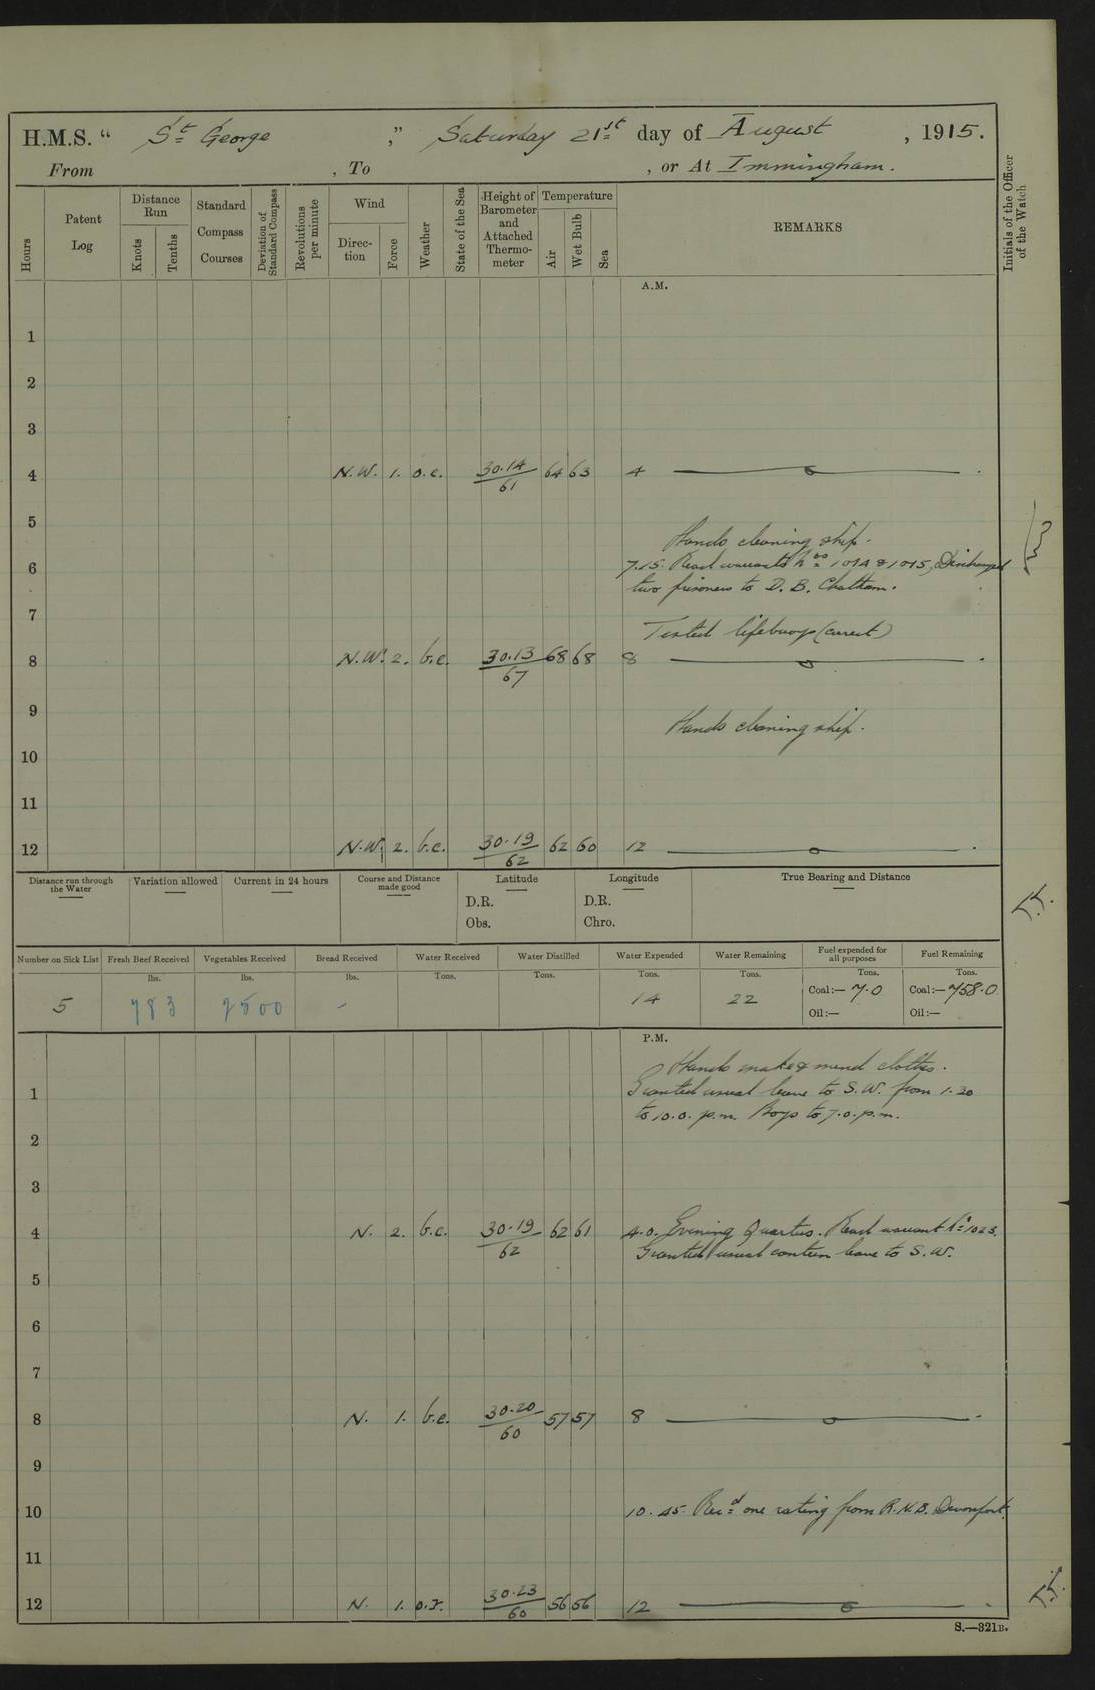 H.M.S. “ St George ” Saturday 21st day of August , 1915.
From , To , or At Immingham.
Hours
Patent Log
Distance Run
Knots
Tenths
Standard Compass Courses
Deviation of Standard Compass
Revolutions per minute
Wind
Direction
Force
Weather
State of the Sea
Height of Barometer and Attached Thermometer
Temperature
Air
Wet Bulb
Sea
REMARKS
Initials of the Officer of the Watch
A.M.
1
2
3
4 N.W. 1. o.c. 30.14/61 64 63 4
5
Hands cleaning ship.
6 7.15. Read warrants Nos 1014 & 1015, Discharged
two prisoners to D.B. Chatham.
7
Tested lifebuoys (correct)
8 N.W. 2. b.c. 30.13/67 68 68 8
9
Hands cleaning ship.
10
11
12 N.W. 2. b.c. 30.19/62 62 60 12
Distance run through the Water
Variation allowed
Current in 24 hours
Course and Distance made good
Latitude
D.R.
Obs.
Longitude
D.R.
Chro.
True Bearing and Distance
Number on Sick List Fresh Beef Received Vegetables Received Bread Received Water Received Water Distilled Water Expended Water Remaining Fuel expended for all purposes Fuel Remaining
lbs. lbs. lbs. Tons. Tons. Tons. Tons. Tons. Tons.
5 783 7500 - 14 22 Coal:— 7.0 Coal:— 758.0
Oil:— Oil:—
P.M.
Hands make & mend clothes.
1 Granted usual leave to S.W. from 1.30
to 10.0. p.m. Boys to 7.0. p.m.
2
3
4 N. 2. b.c. 30.19/62 62 61 4.0. Evening Quarters. Read warrant No 1023.
Granted usual canteen leave to S.W.
5
6
7
8 N. 1. b.c. 30.20/60 57 57 8
9
10 10.45. Recd one rating from R.N.B. Devonport.
11
12 N. 1. o.r. 30.23/60 56 56 12
S.—321B.